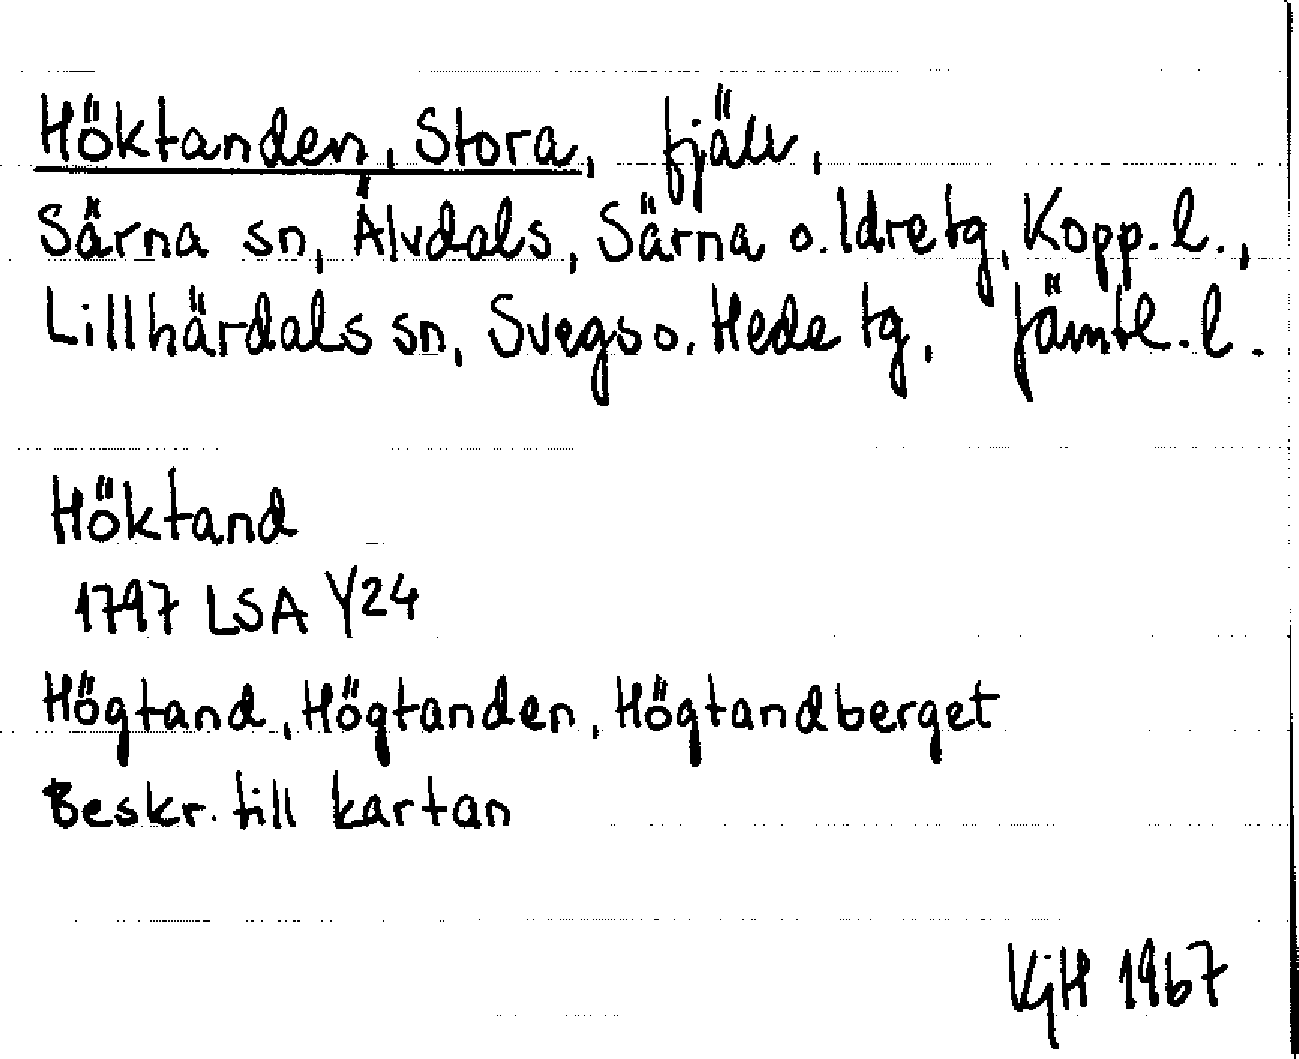 Höktanden, Stora, fjäll,
Särna sn, Älvdals, Särna o. Idre tg, Kopp. l.,
Lillhärdals sn, Svegs o. Hede tg, Jämtl. l.
Höktand
1797 LSA Y24
Högtand, Högtanden, Högtandberget
Beskr. till kartan
VjH 1967